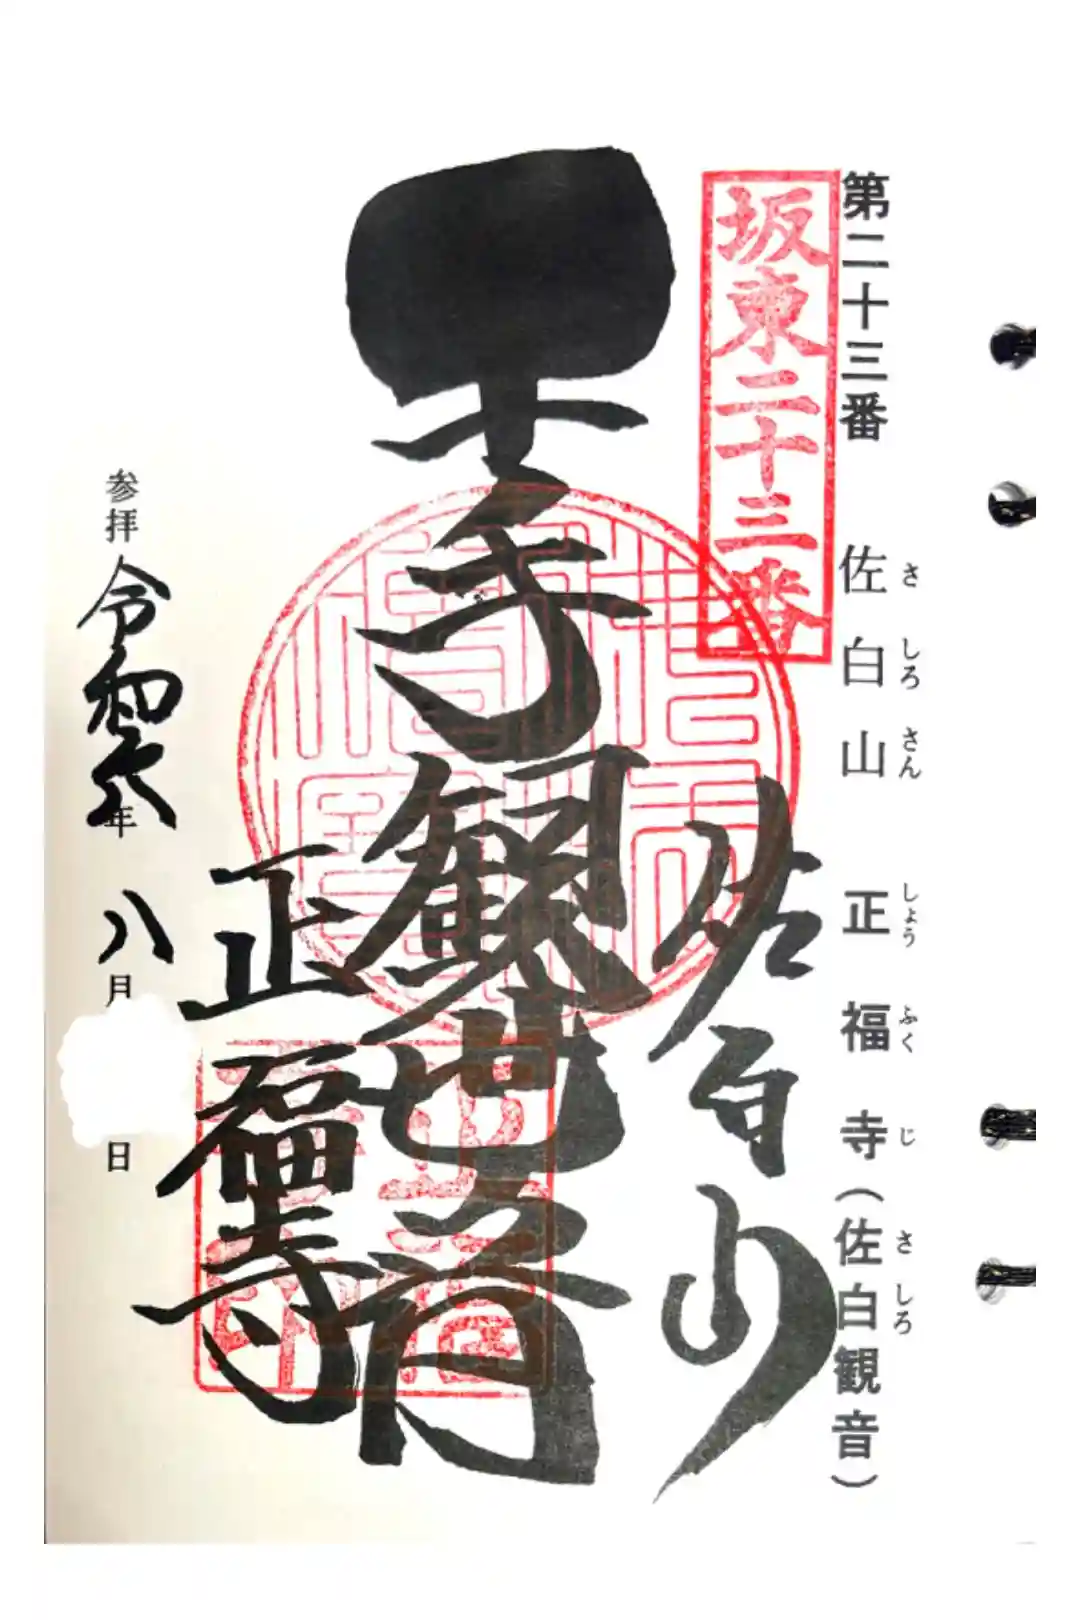 第二十三番 佐白山 正福寺(佐白観音)
さ しろ さん しょう ふく じ さ しろ
坂東二十三番
佐白山
千手観世音
正福寺
参拝 令和 年 八月 日